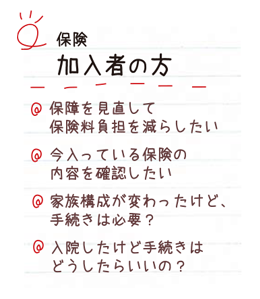 保険
加入者の方
保障を見直して
保険料負担を減らしたい
今入っている保険の
内容を確認したい
家族構成が変わったけど、
手続きは必要？
入院したけど手続きは
どうしたらいいの？